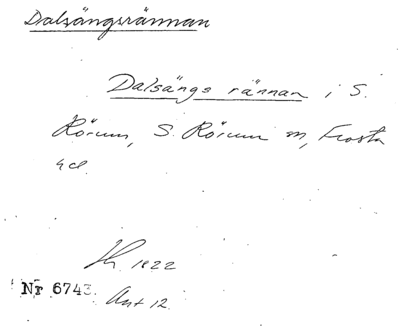 Dalsängsrännan
Dalsängs rännan i S.
Rörum, S. Rörum sn, Frosta
hd.
1822
Nr 6743.
Ant 12.